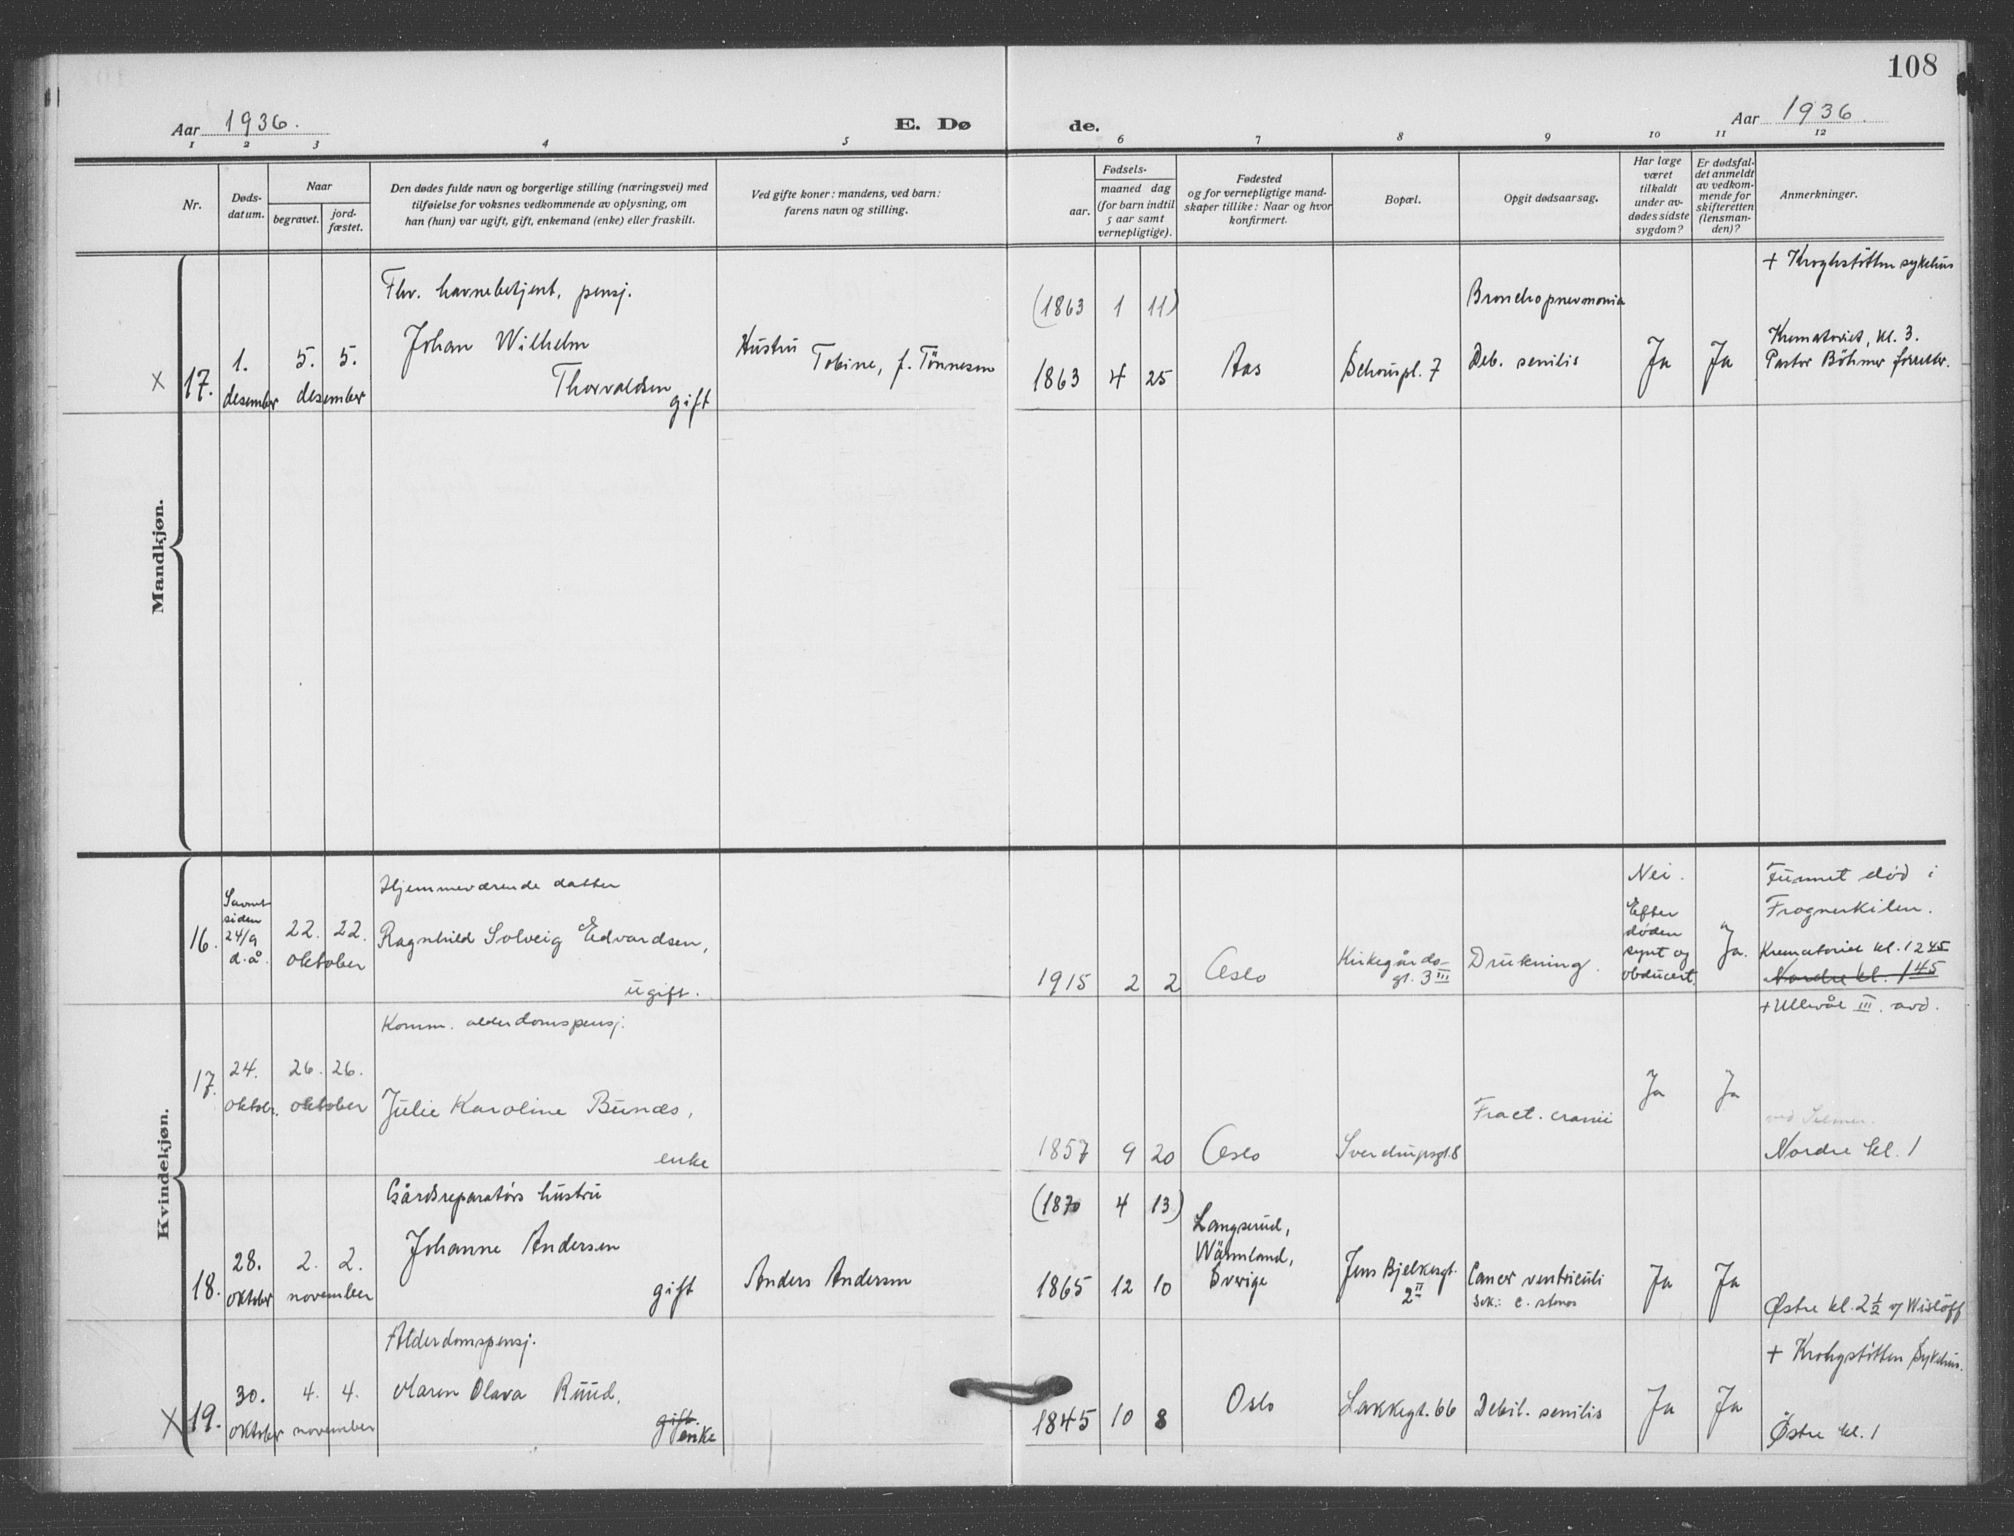 108
Aar 1936.
E. Dø
de.
Aar 1936.
1 2 3 4 5 6 7 8 9 10 11 12
Nr.
Døds-
datum.
Naar
begravet.
jord-
fæstet.
Den dødes fulde navn og borgerlige stilling (næringsvei) med
tilføielse for voksnes vedkommende av oplysning, om
han (hun) var ugift, gift, enkemand (enke) eller fraskilt.
Ved gifte koner: mandens, ved barn:
farens navn og stilling.
Fødsels-
aar.
maaned dag
(for barn indtil
5 aar samt
vernepligtige).
Fødested
og for vernepligtige mand-
skaper tillike: Naar og hvor
konfirmert.
Bopæl.
Opgit dødsaarsag.
Har læge
været
tilkaldt
under av-
dødes sidste
sygdom?
Er dødsfal-
det anmeldt
av vedkom-
mende for
skifteretten
(lensman-
den)?
Anmerkninger.
Mandkjøn.
x 17.
1.
desember
5. 5.
desember
Fhv. havnebetjent, pensj.
Johan Wilhelm
Thorvaldsen
gift
Hustru
Tobine, f. Tönnesen
(1863 1 11)
1863 4 25
Aas
Schouspl. 7
Bronchopnevmonia
Deb. senilis
Ja
Ja
+ Kroghstötten sykehus
Krematoriet, kl. 3.
Pastor Böhmer forrettr.
Kvindekjøn.
16.
Savnet
siden
24/9
d.å.
22. 22.
oktober
Hjemmeværende datter
Ragnhild Solveig Edvardsen,
ugift.
1915 2 2
Oslo
Kirkegårds-
gt. 3 III
Drukning.
Nei.
Efter
døden
synt og
obducert
Ja.
Funnet død i
Frognerkilen.
Krematoriet kl. 12 45
Nordre kl. 1 45
17.
24.
oktobr.
26. 26.
oktober
Komm. alderdomspensj.
Julie Karoline Bunæs,
enke
1857 9 20
Oslo
Sverdrupsgt. 8
Fract. cranii
Ja
Ja
+ Ullevål III. avd.
ved
Nordre kl. 1
18.
28.
oktober
2. 2.
november
Gårdsreparatørs hustru
Johanne Andersen
gift
Anders Andersen
(1870 4 13)
1865 12 10
Langserud,
Wärmland,
Sverige
Jens Bjelkesgt.
2 II
Cancer ventriculi
Sek.: c. stenos
Ja
Ja
Østre kl. 2 1/2 v/ Wislöff
x 19.
30.
oktober
4. 4.
november
Alderdomspensj.
Maren Olava Ruud,
gift.
enke
1845 10 8
Oslo
Lakkegt. 66
Debil. senilis
Ja
Ja
+ Krohgstötten Sykehus.
Østre kl. 1